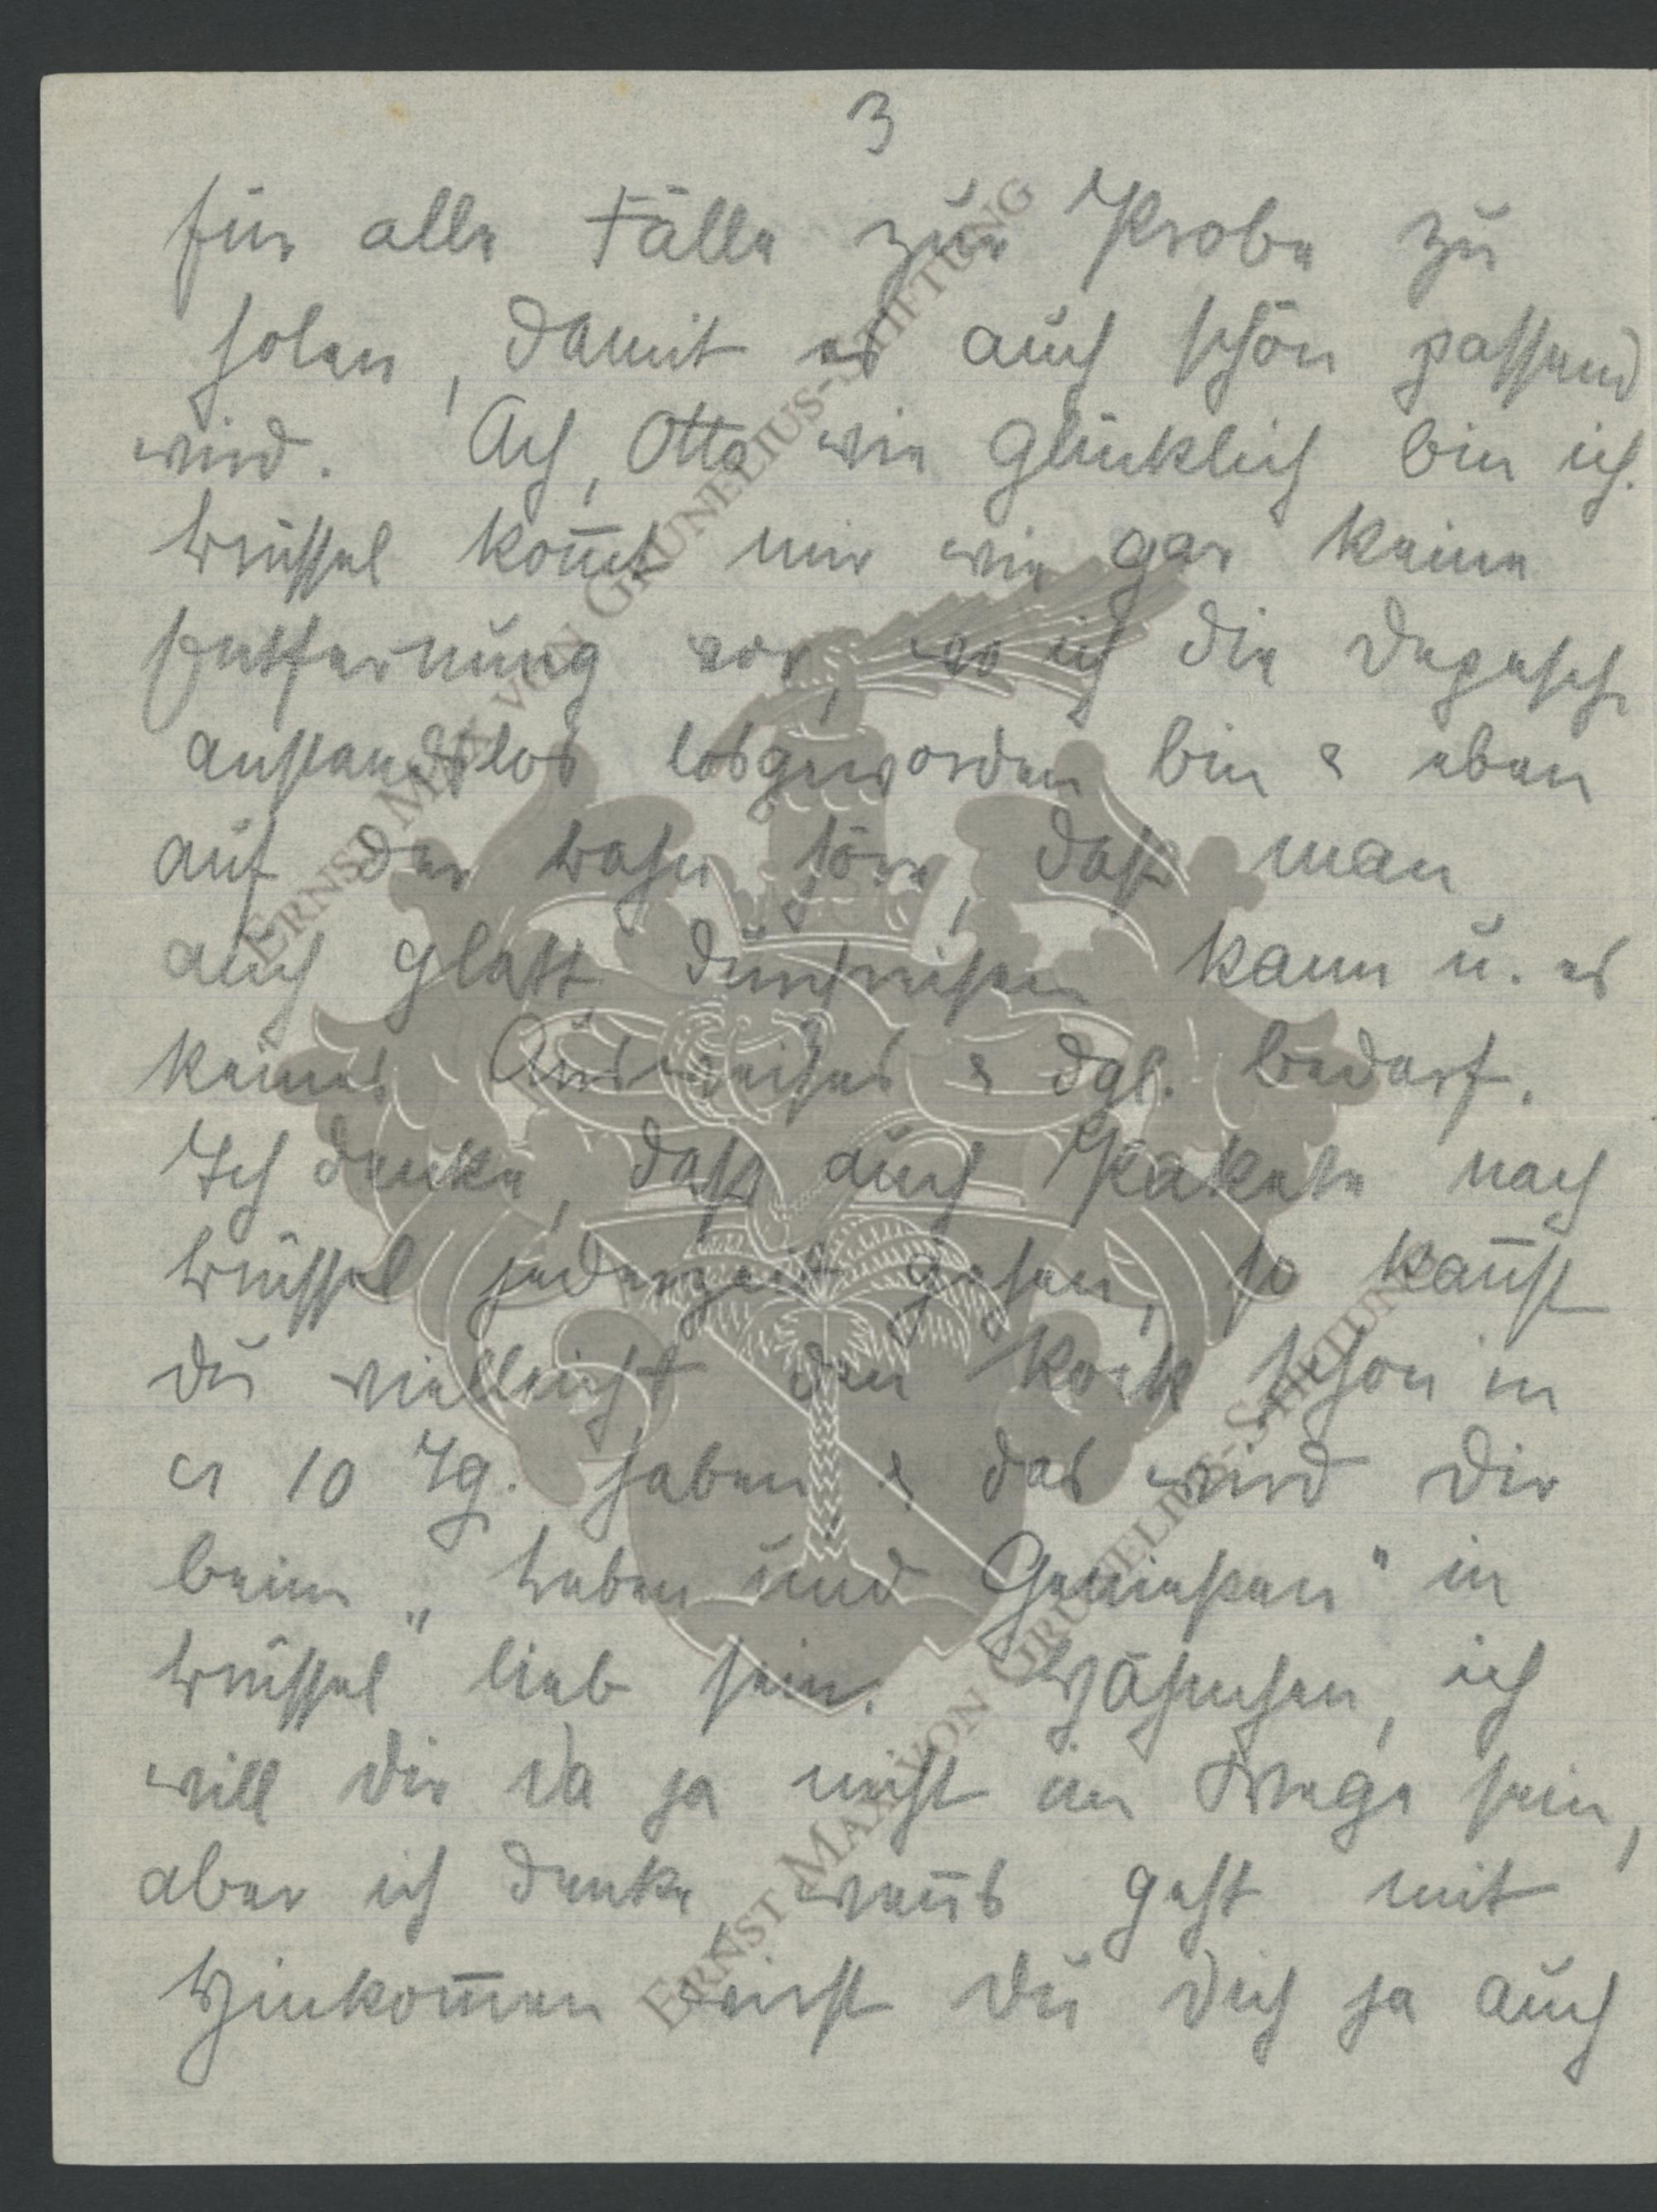 3
für alle Fälle zur Probe zu
holen, damit es auch schön passend
wird. Ach, Otto wie glücklich bin ich.
Brüssel kom̄t mir wie gar keine
Entfernung vor, wo ich die Depesche
anstandslos losgeworden bin & eben
auf der Bahn höre, daß man
auch glatt durchreisen kann u. es
keines Ausweises & dgl. bedarf.
Ich denke, daß auch Pakete nach
Brüssel jederzeit gehen, so kan̄st
du vielleicht den Rock schon in
10 Tg. haben & das wird dir
beim „Leben und Genießen" in
Brüssel lieb sein. Häschen, ich
will dir da ja nicht im Wege sein,
aber ich denke wen̄s geht mit
Hinkom̄en freust du dich ja auch
ERNST MAX VON GRUNELIUS-STIFTUNG
ERNST MAX VON GRUNELIUS-STIFTUNG